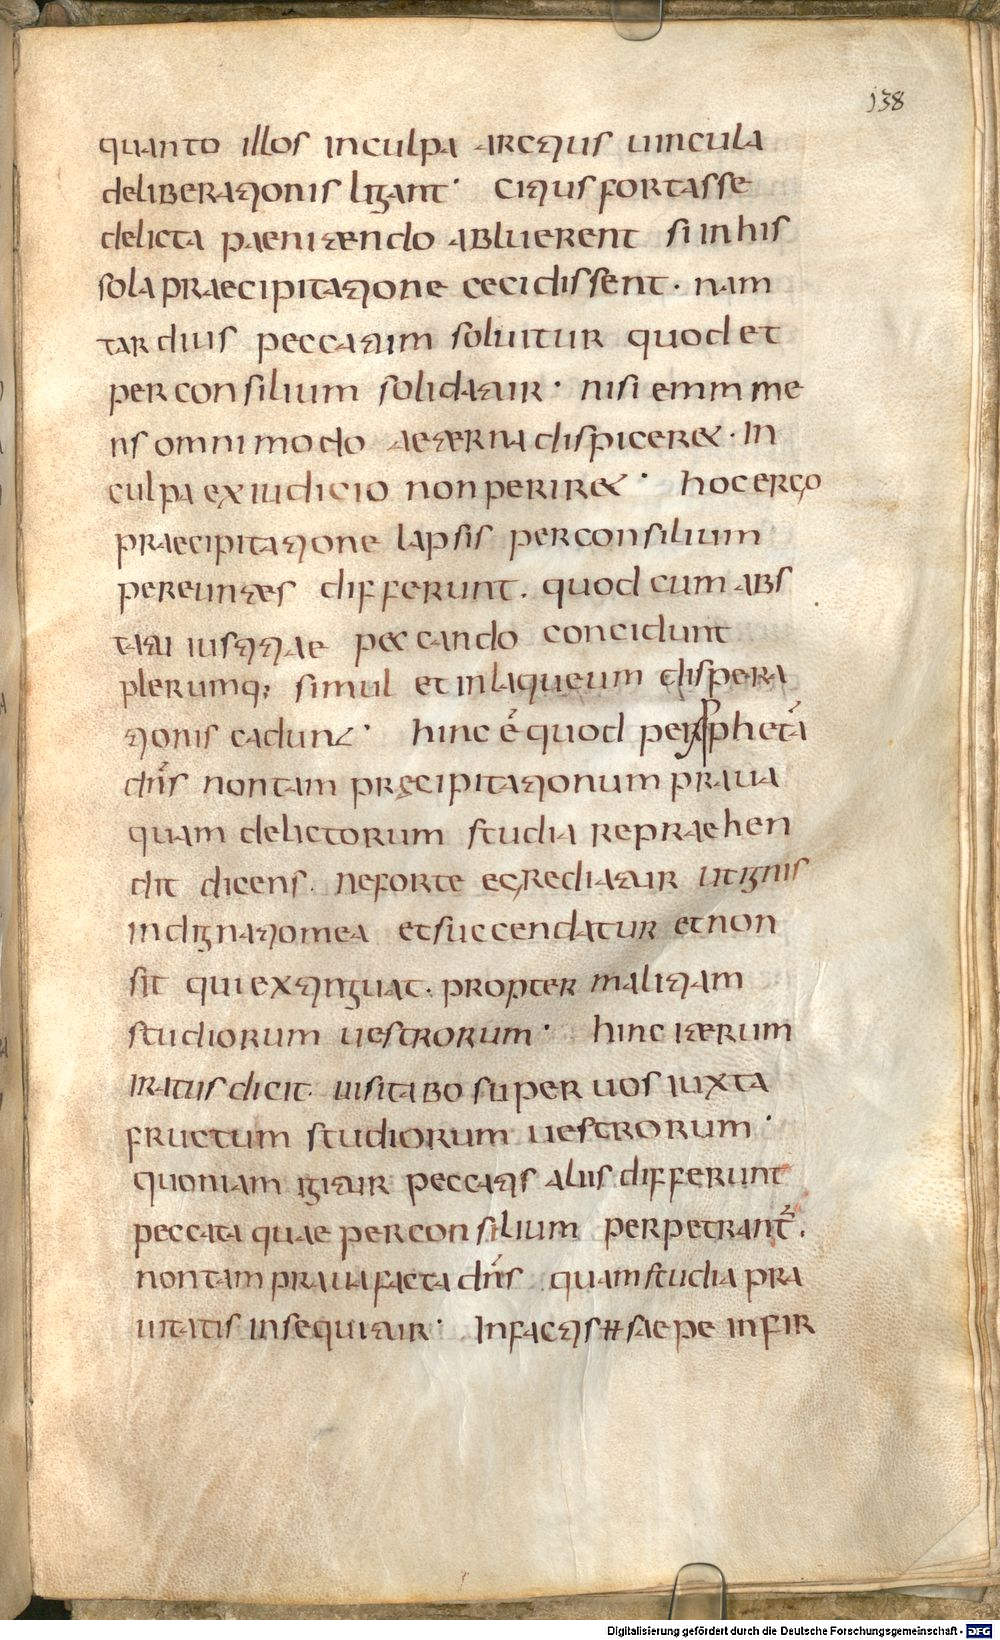 138
quanto illos inculpa artius uincula
deliberationis ligant· Citius fortasse
delicta paenitendo abluerent si inhis
sola praecipitatione cecidissent· nam
tardius peccatum soluitur quod et
per consilium solidatur· nisi enim me
ns omnimodo aeterna dispiceret· In
culpa exiudicio nonperiret· hoc ergo
praecipitatione lapsis perconsilium
pereuntes differunt· quod cum abs
tatu iustitiae peccando concidunt
plerumq; simul et inlaqueum dispera
tionis cadunt· hinc ē quod per pphetā
dn̄s nontam pręcipitationum praua
quam delictorum studia repraehen
dit dicens· neforte egrediatur ut ignis
indignatiomea et succendatur et non
sit qui extinguat· propter malitiam
studiorum uestrorum· hinc iterum
iratus dicit· uisitabo super uos iuxta
fructum studiorum uestrorum·
quoniam igitur peccatis aliis differunt
peccata quae per consilium perpetrant̄·
nontam praua facta dn̄s quam studia pra
uitatis insequitur· In factis # saepe infir
Digitalisierung gefördert durch die Deutsche Forschungsgemeinschaft - DFG